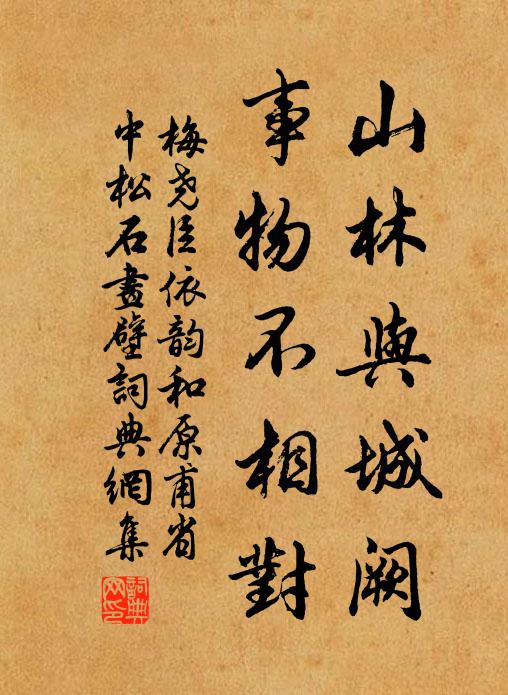 山林與城闕
事物不相對
梅尧臣依韵和原甫省
中松石畫壁詞典網集
詞典網印